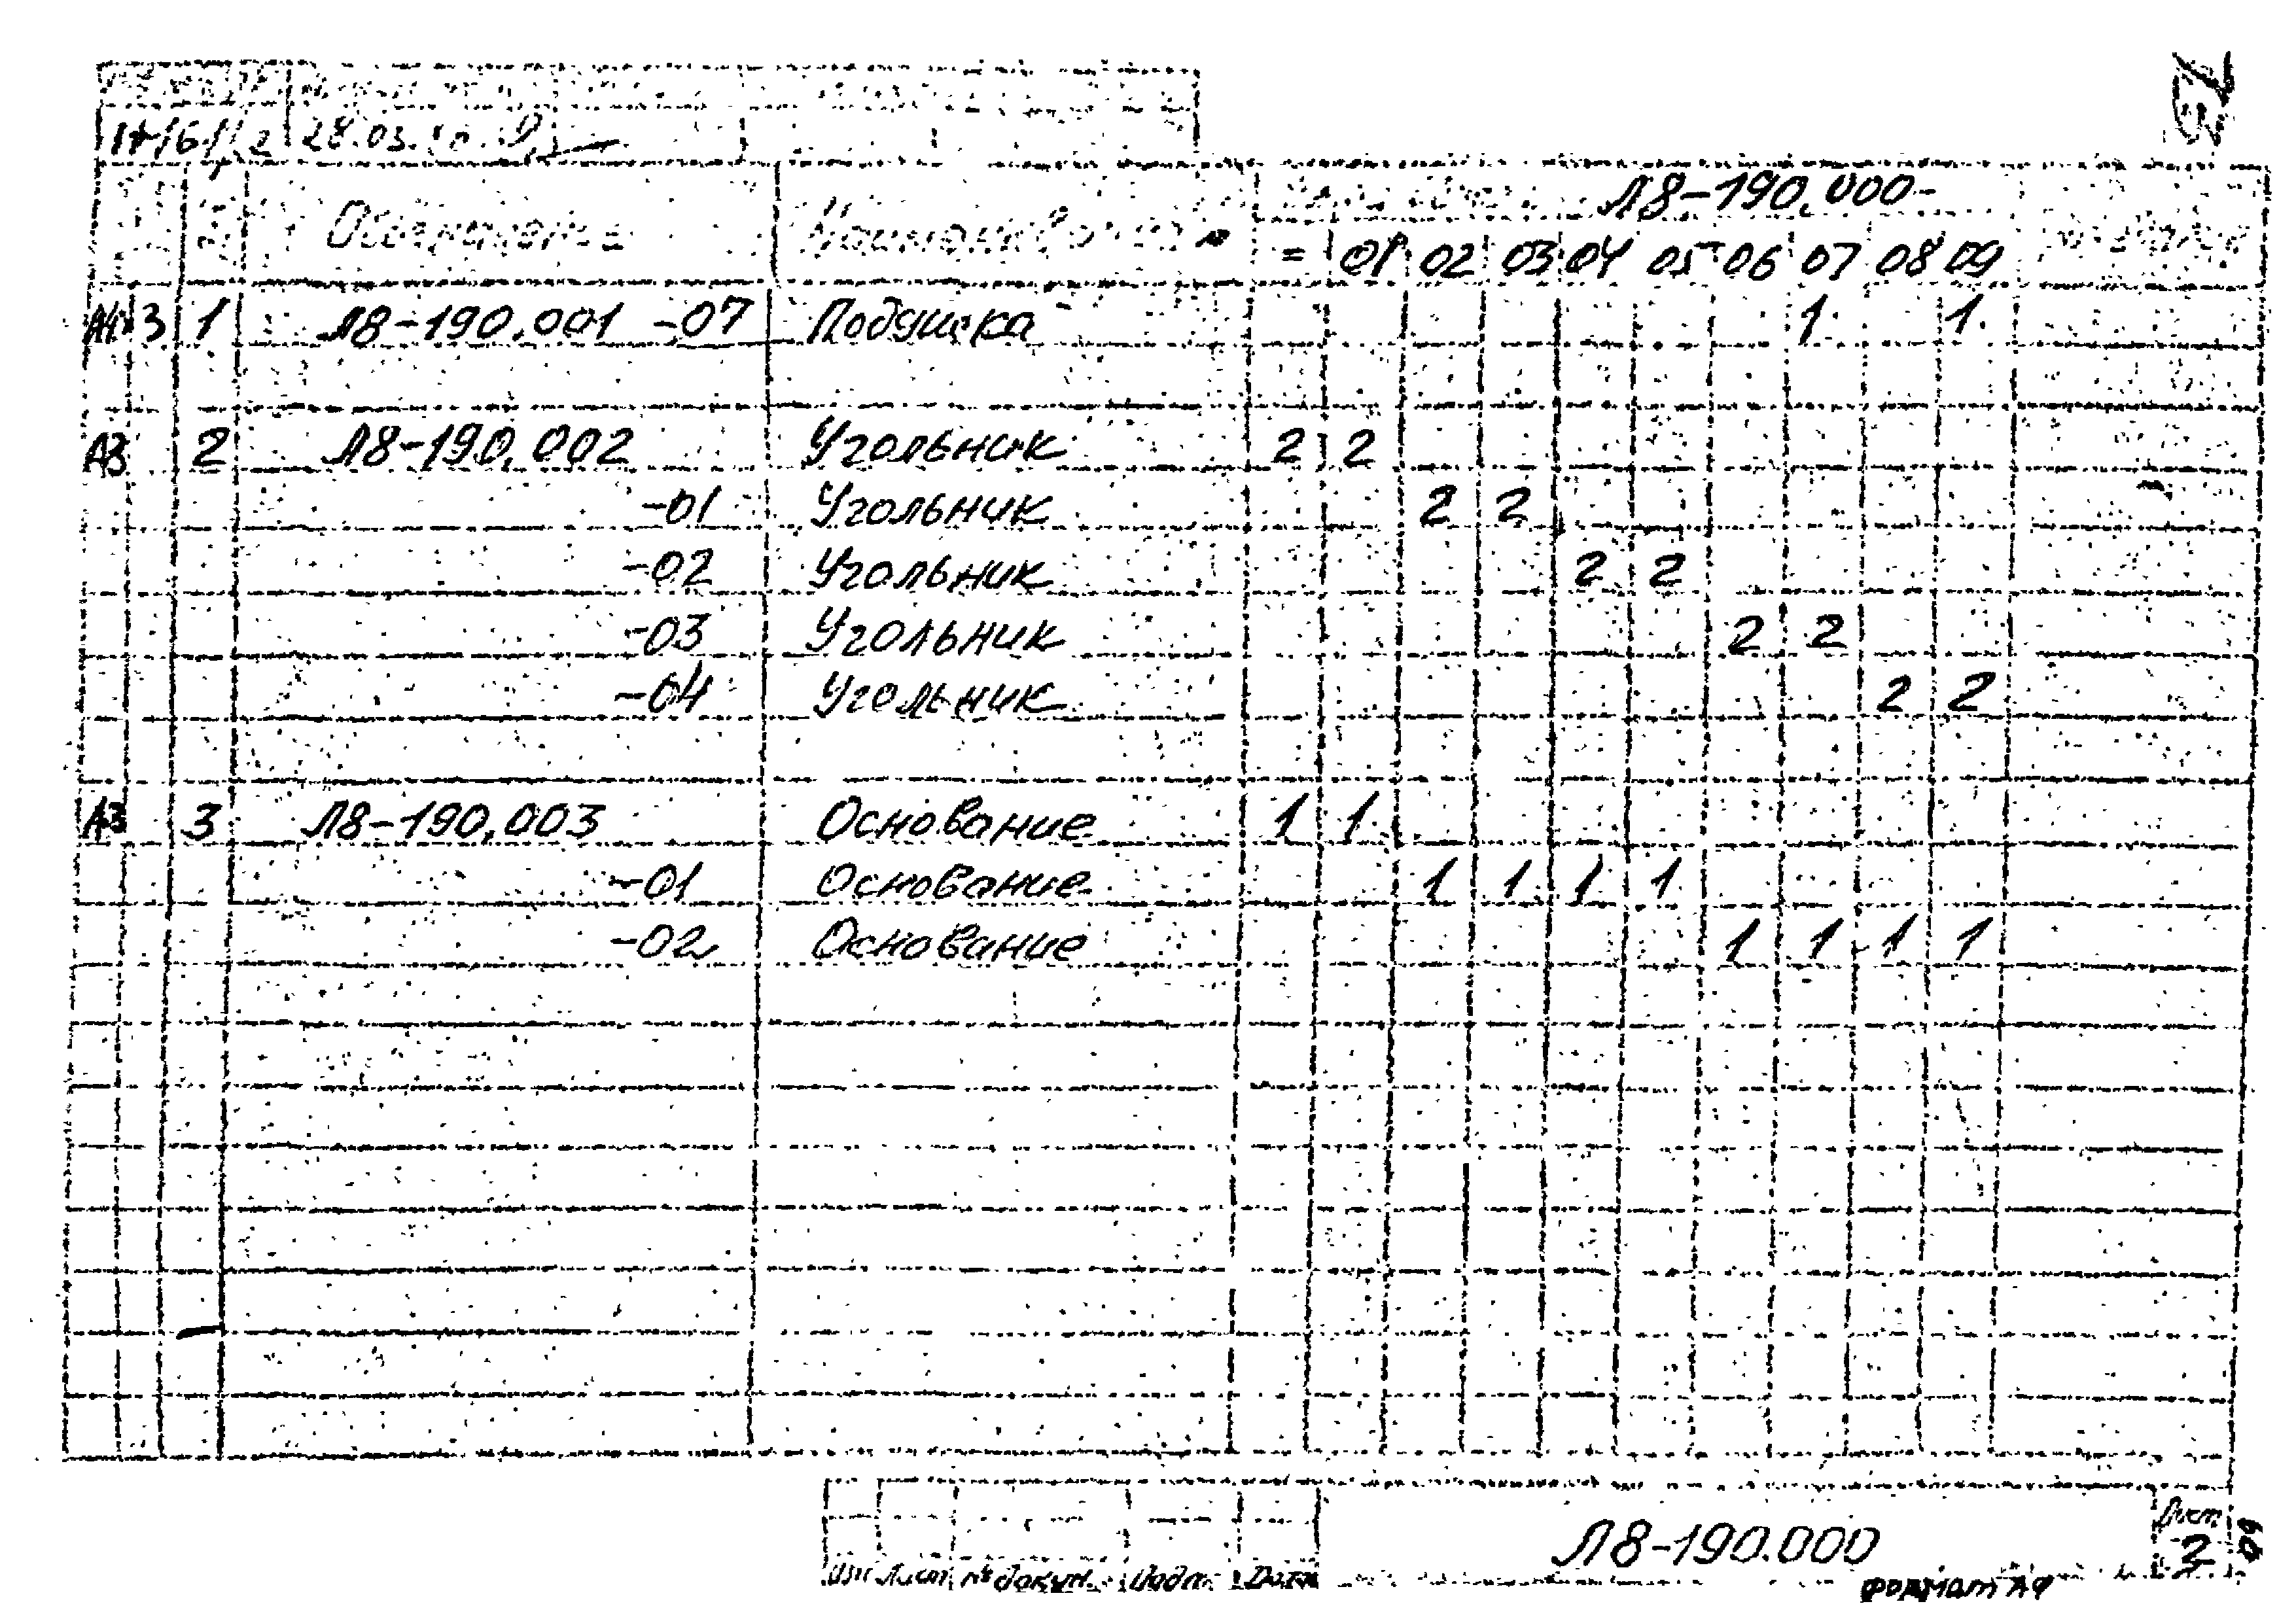 28.03.
Л8-190.000-
Обозначение Наименование - 01 02 03 04 05 06 07 08 09
А4 3 1 Л8-190.001 -07 Подушка 1 1
А3 2 Л8-190.002 Угольник 2 2
-01 Угольник 2 2
-02 Угольник 2 2
-03 Угольник 2 2
-04 Угольник 2 2
А3 3 Л8-190.003 Основание 1 1
-01 Основание 1 1 1 1
-02 Основание 1 1 1 1
Изм Лист № докум. Подп. Дата
Л8-190.000
Лист
2
Формат А4